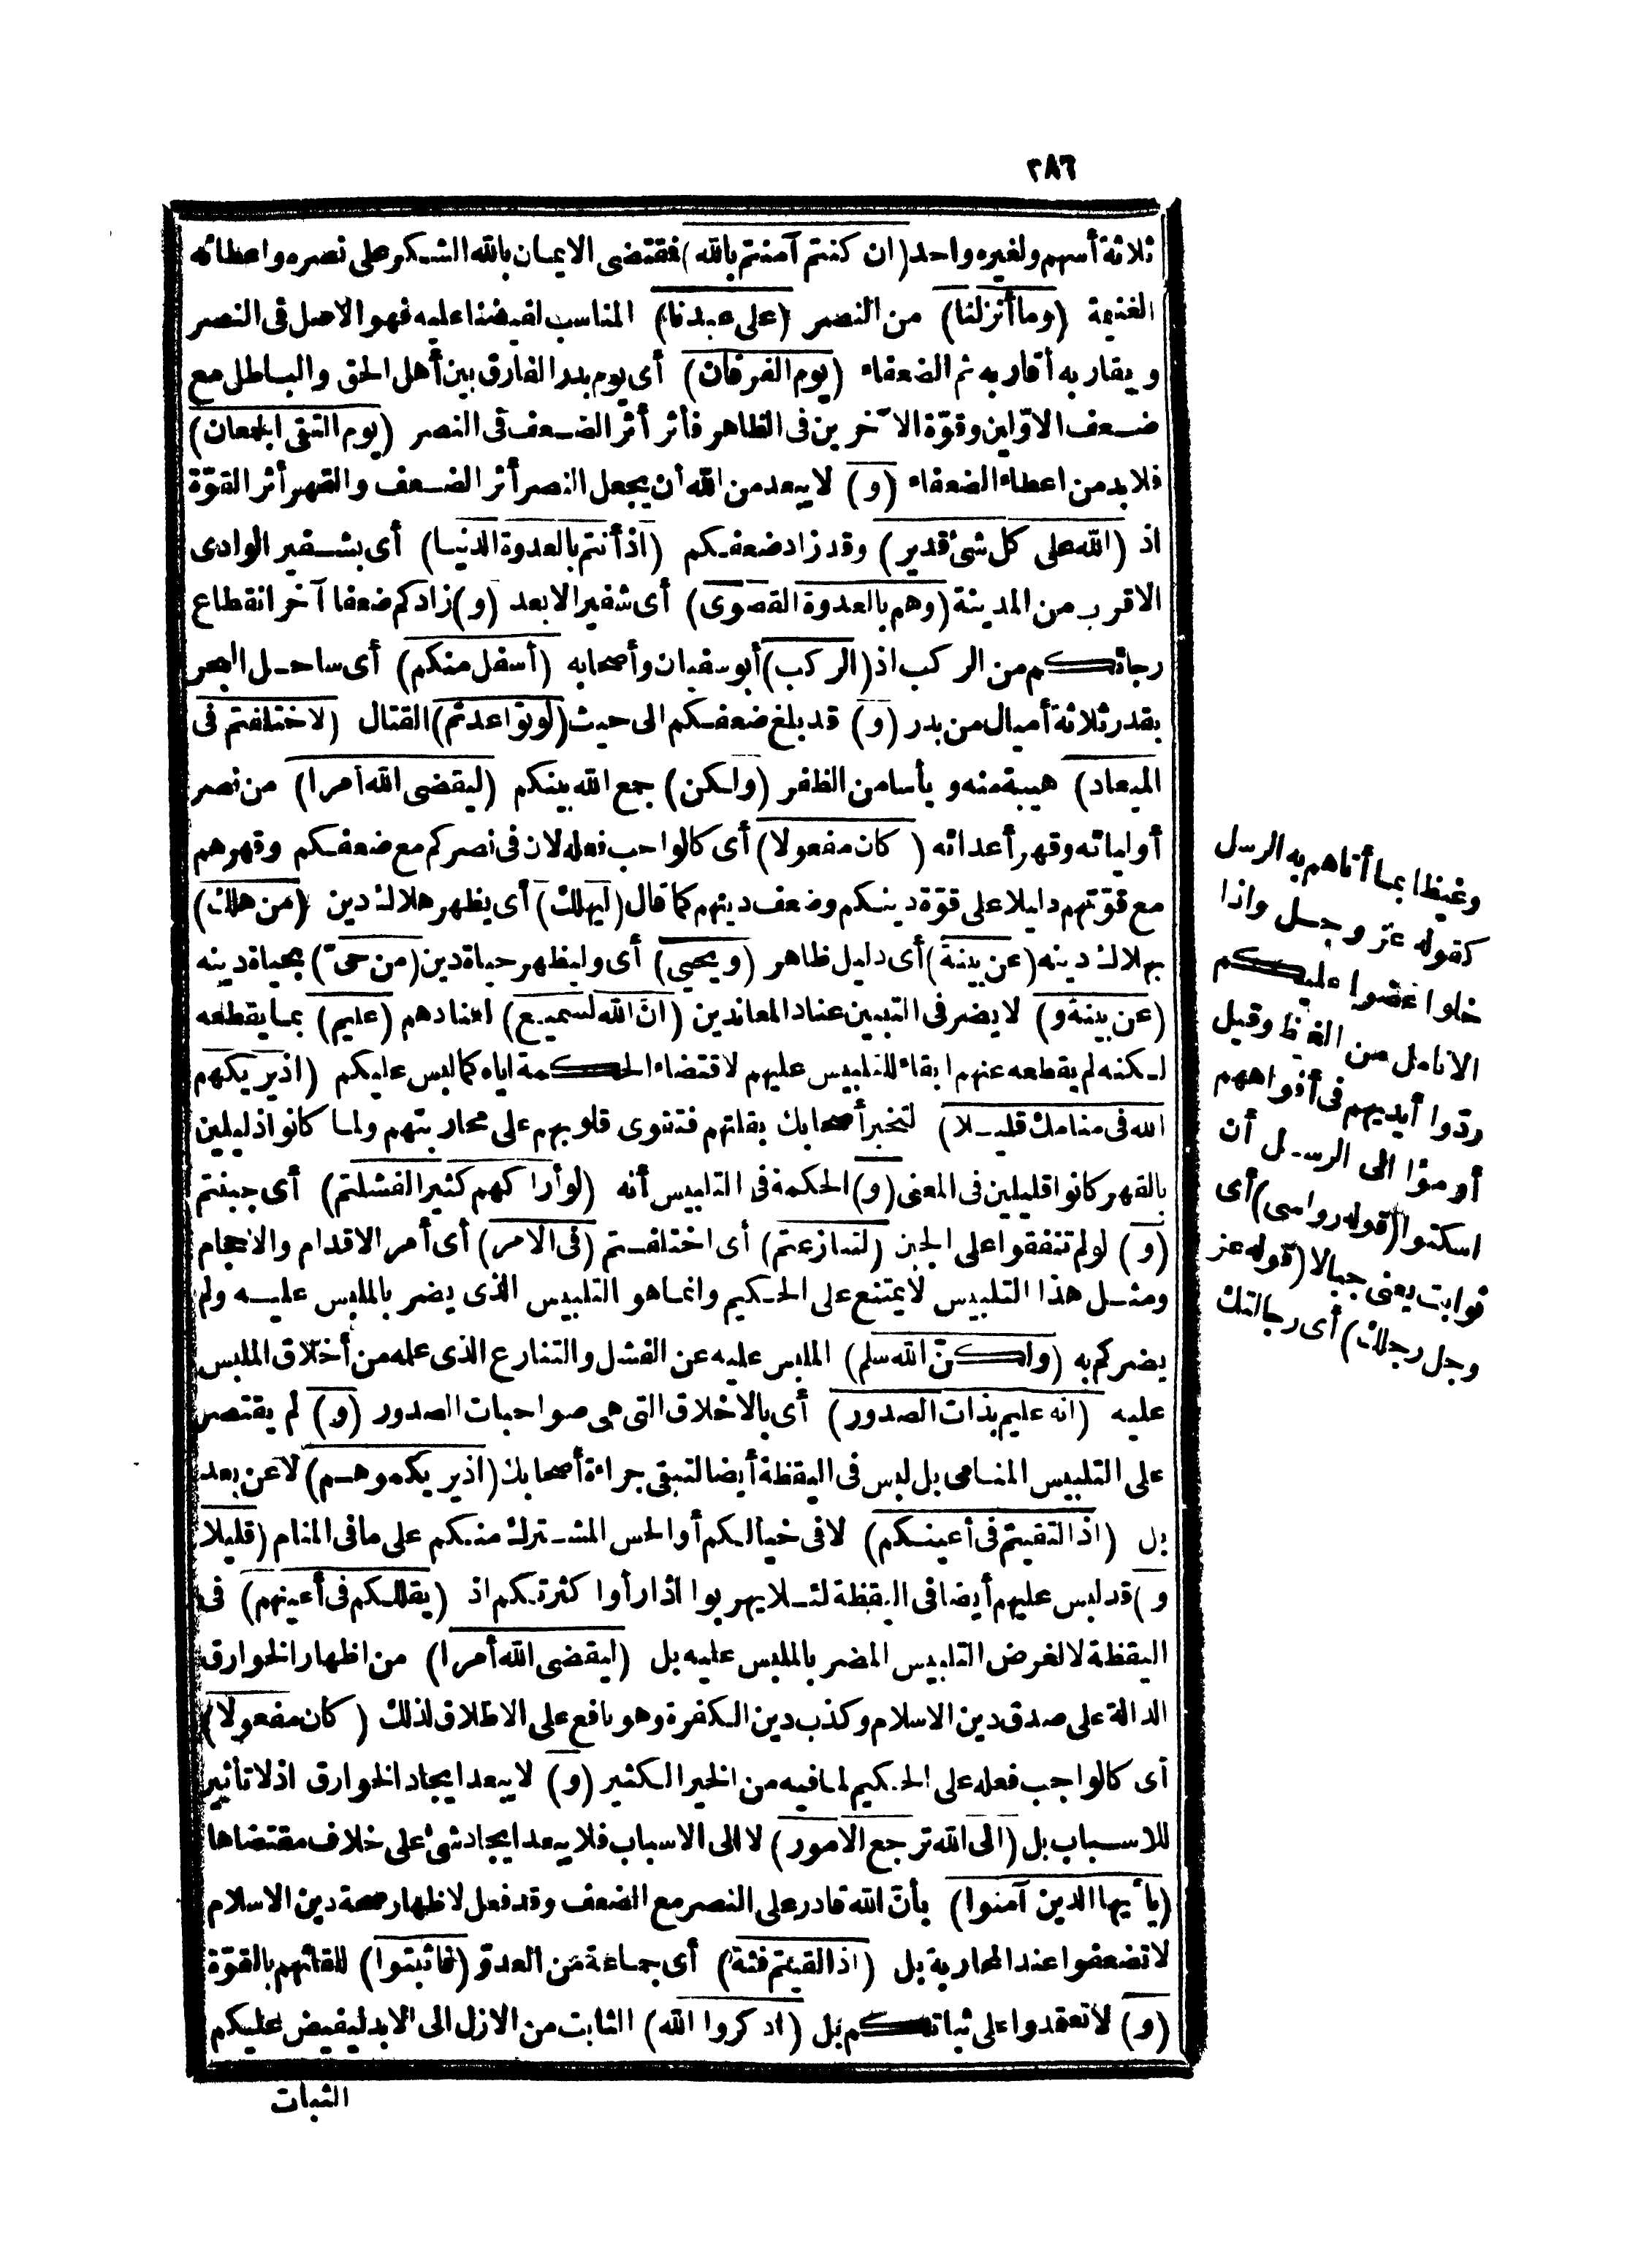 ٢٨٦
ثلاثة أسهم ولغيره واحد (ان كنتم آمنتم بالله) فقتضى الايمان بالله الشكر على نصره واعطائه
الغنيمة (وما أنزلنا) من النصر (على عبدنا) المناسب لفيضنا عليه فهو الاصل فى النصر
ويقاربه أقاربه ثم الضعفاء (يوم الفرقان) أى يوم بدر الفارق بين أهل الحق والباطل مع
ضعف الاوّلين وقوّة الآخرين فى الظاهر فأثر أثر الضعف فى النصر (يوم التقى الجمعان)
فلا بد من اعطاء الضعفاء (و) لا يبعد من الله أن يجعل النصر أثر الضعف والقهر أثر القوّة
اذ (الله على كل شئ قدير) وقد زاد ضعفكم (اذ أنتم بالعدوة الدنيا) أى بشفير الوادى
الاقرب من المدينة (وهم بالعدوة القصوى) أى شفير الابعد (و) زادكم ضعفا آخر انقطاع
رجائكم من الركب اذ (الركب) أبو سفيان وأصحابه (أسفل منكم) أى ساحل البحر
بقدر ثلاثة أميال من بدر (و) قد بلغ ضعفكم الى حيث (لو تواعدتم) القتال (لاختلفتم فى
الميعاد) هيبة منه ويأسا من الظفر (ولكن) جمع الله بينكم (ليقضى الله أمرا) من نصر
أوليائه وقهر أعدائه (كان مفعولا) أى كالواجب فعله لان فى نصركم مع ضعفكم وقهرهم
مع قوّتهم دليلا على قوّة دينكم وضعف دينهم كما قال (ليهلك) أى يظهر هلاك دين (من هلك)
بهلاك دينه (عن بينة) أى دليل ظاهر (ويحيي) أى وليظهر حياة دين (من حىّ) بحياة دينه
(عن بينة و) لا يضر فى التبيين عناد المعاندين (انّ الله لسميع) لعنادهم (عليم) بما يقطعه
لكنه لم يقطعه عنهم ابقاء للتلبيس عليهم لاقتضاء الحكمة اياه كما لبس عليكم (اذ يريكهم
الله فى منامك قليلا) لتخبر أصحابك بقلتهم فتتقوى قلوبهم على محاربتهم ولما كانوا ذليلين
بالقهر كانوا قليلين فى المعنى (و) الحكمة فى التلبيس أنه (لو أراكهم كثيرا لفشلتم) أى جبنتم
(و) لو لم تتفقوا على الجبن (لتنازعتم) أى اختلفتم (فى الامر) أى أمر الاقدام والاحجام
ومثل هذا التلبيس لا يمتنع على الحكيم وانما هو التلبيس الذى يضر بالملبس عليه ولم
يضركم به (ولكنّ الله سلم) الملبس عليه عن الفشل والتنازع الذى علمه من أخلاق الملبس
عليه (انه عليم بذات الصدور) أى بالاخلاق التى هى صواحبات الصدور (و) لم يقتصر
على التلبيس المنامى بل لبس فى اليقظة أيضا لتبقى جراءة أصحابك (اذ يريكموهم) لا عن بعد
بل (اذ التقيتم فى أعينكم) لا فى خيالكم أو الحس المشترك منكم على ما فى المنام (قليلا
و) قد لبس عليهم أيضا فى اليقظة لئلا يهربوا اذا رأوا كثرتكم اذ (يقللكم فى أعينهم) فى
اليقظة لا لغرض التلبيس المضر بالملبس عليه بل (ليقضى الله أمرا) من اظهار الخوارق
الدالة على صدق دين الاسلام وكذب دين الكفرة وهو نافع على الاطلاق لذلك (كان مفعولا)
أى كالواجب فعله على الحكيم لما فيه من الخير الكثير (و) لا يبعد ايجاد الخوارق اذ لا تأثير
للاسباب بل (الى الله ترجع الامور) لا الى الاسباب فلا يبعد ايجاد شئ على خلاف مقتضاها
(يا أيها الذين آمنوا) بأنّ الله قادر على النصر مع الضعف وقد فعل لاظهار صحة دين الاسلام
لا تضعفوا عند المحاربة بل (اذا لقيتم فئة) أى جماعة من العدوّ (فاثبتوا) للقائهم بالقوّة
(و) لا تعتمدوا على ثباتكم بل (اذكروا الله) الثابت من الازل الى الابد ليفيض عليكم
الثبات
وغيظا بما أتاهم به الرسل
كقوله عز وجل واذا
خلوا عضوا عليكم
الانامل من الغيظ وقيل
ردّوا أيديهم فى أفواههم
أومؤا الى الرسل أن
اسكتوا (قوله رواسى) أى
ثوابت يعنى جبالا (قوله عز
وجل رجلك) أى رجالتك